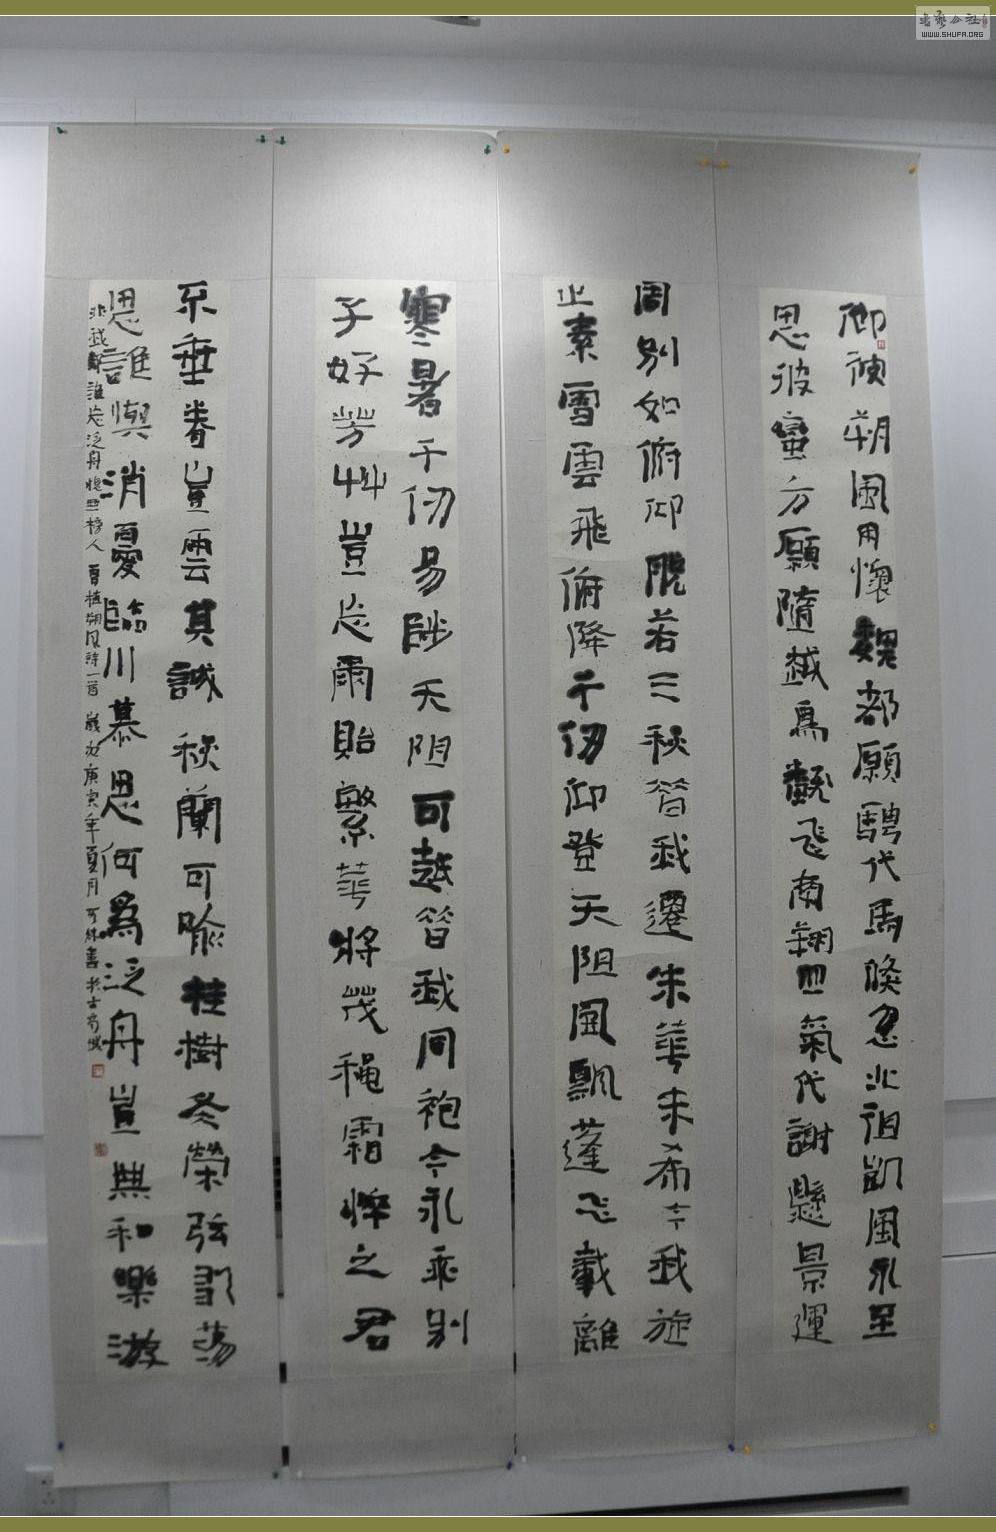 仰彼朔風用懷魏都願騁代馬倏忽北徂凱風永至
思彼蠻方願隨越鳥翻飛南翔四氣代謝懸景運
周別如俯仰脫若三秋昔我遷朱華未希今我旋
止素雪雲飛俯降千仞仰登天阻風飄蓬飛載離
寒暑千仞易陟天阻可越昔我同袍今永乖別
子好芳艸豈忘爾貽繁華將茂穐霜悴之君
不垂眷豈雲其誠秋蘭可喻桂樹冬榮弦歌蕩
思誰與消憂臨川慕思何為泛舟豈無和樂游
非我鄰誰忘泛舟愧無榜人 曹植朔風詩一首 歲次庚寅年夏月可林書於
書藝公社
WWW.SHUFA.ORG